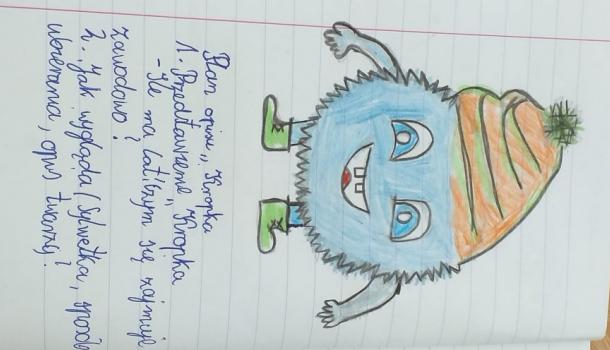 Plan opisu „Knopka
1. Przedstawienie „Knopka
- Ile ma lat i czym się zajmuje
zawodowo?
2. Jak wygląda (sylwetka,
ubierania, opis twarzy?